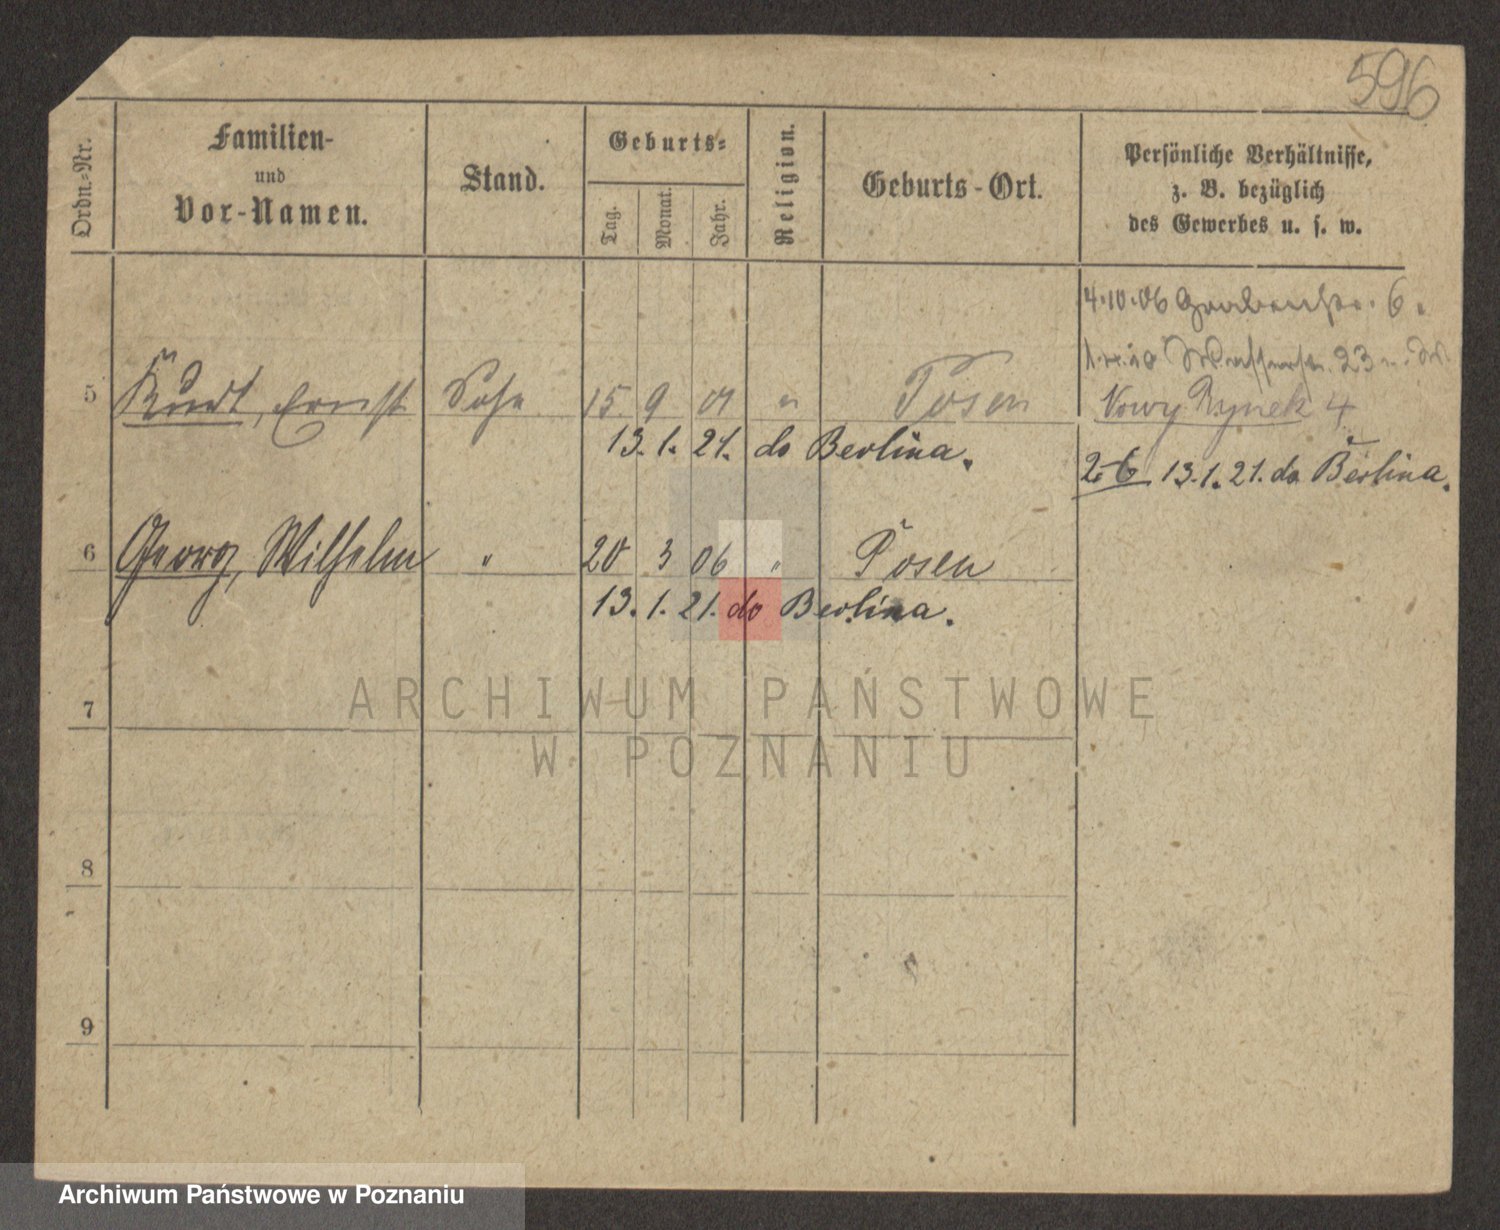 596
Ordn.=Nr.
Familien-
und
Vor-Namen.
Stand.
Geburts=
Tag.
Monat.
Jahr.
Religion.
Geburts-Ort.
Persönliche Verhältnisse,
z. B. bezüglich
des Gewerbes u. s. w.
4.10.06 Grabenstr. 6.
Wasserstr. 23
5 Kurt, Ernst Sohn 15 9 01 " Posen Nowy Rynek 4
13.1.21. do Berlina.
2-6 13.1.21. do Berlina.
6 Georg, Wilhelm " 20 3 06 " Posen
13.1.21. do Berlina.
ARCHIWUM PAŃSTWOWE
7
W POZNANIU
8
9
Archiwum Państwowe w Poznaniu